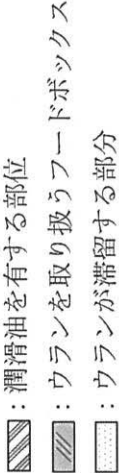 ：潤滑油を有する部位
：ウランを取り扱うフードボックス
：ウランが滞留する部分